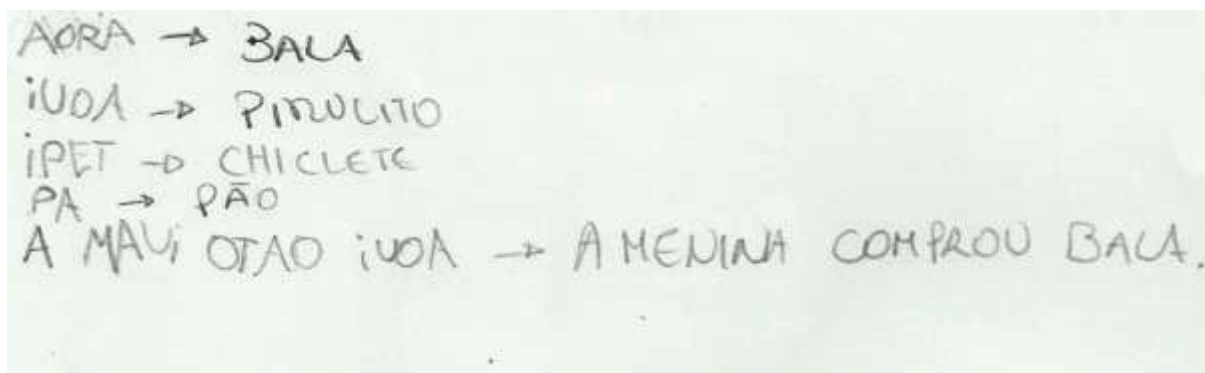 AORA → BALA
iUOA → PIRULITO
iPET → CHICLETE
PA → PÃO
A MAUi OTAO iUOA → A MENINA COMPROU BALA.